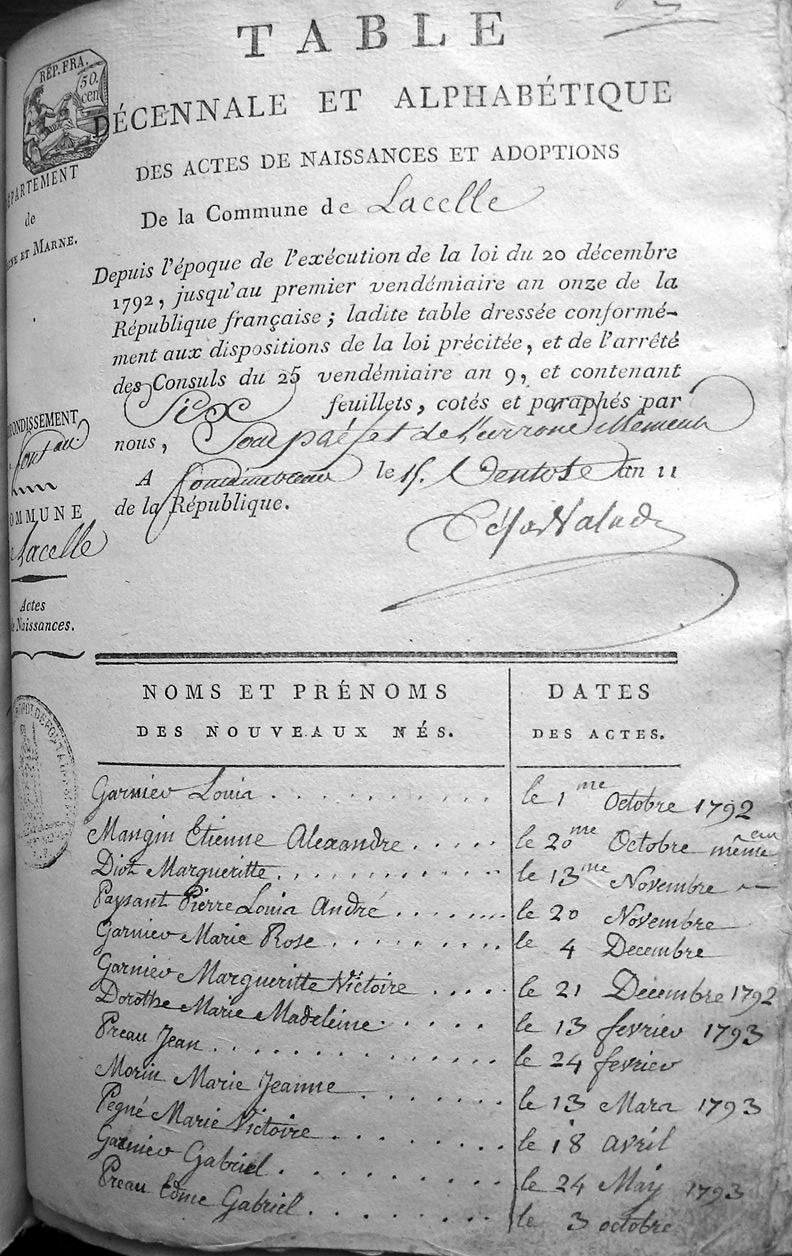 TABLE
RÉP. FRA.
50.
cen
DÉCENNALE ET ALPHABÉTIQUE
DES ACTES DE NAISSANCES ET ADOPTIONS
ÉPARTEMENT
de
NE ET MARNE.
De la Commune de Lacelle
Depuis l'époque de l'exécution de la loi du 20 décembre
1792, jusqu'au premier vendémiaire an onze de la
République française; ladite table dressée conformé-
ment aux dispositions de la loi précitée, et de l'arrêté
des Consuls du 25 vendémiaire an 9, et contenant
Six feuillets, cotés et paraphés par
nous, Souspréfet de l'arrondissement
A fontainebleau le 15 Ventose an 11
de la République.
RONDISSEMENT
OMMUNE
Lacelle
Actes
de Naissances.
NOMS ET PRÉNOMS
DES NOUVEAUX NÉS.
DATES
DES ACTES.
Garnier Louis . . . . . . . . . . le 1 me Octobre 1792
Mangin Etienne Alexandre . . . . . le 20 me Octobre même
Diot Margueritte . . . . . . . . . . le 13 me Novembre
Paysant Pierre Louis André . . . . . . . le 20 Novembre
Garnier Marie Rose . . . . . . . . . le 4 Decembre
Garnier Margueritte Victoire . . . . le 21 Décembre 1792
Dorothe Marie Madeleine . . . . . le 13 fevrier 1793
Preau Jean . . . . . . . . . . . . . le 24 fevrier
Morin Marie Jeanne . . . . . . . le 13 Mars 1793
Pegné Marie Victoire . . . . . . . le 18 avril
Garnier Gabriel . . . . . . . . le 24 May 1793
Preau Edme Gabriel . . . . . . . le 3 octobre